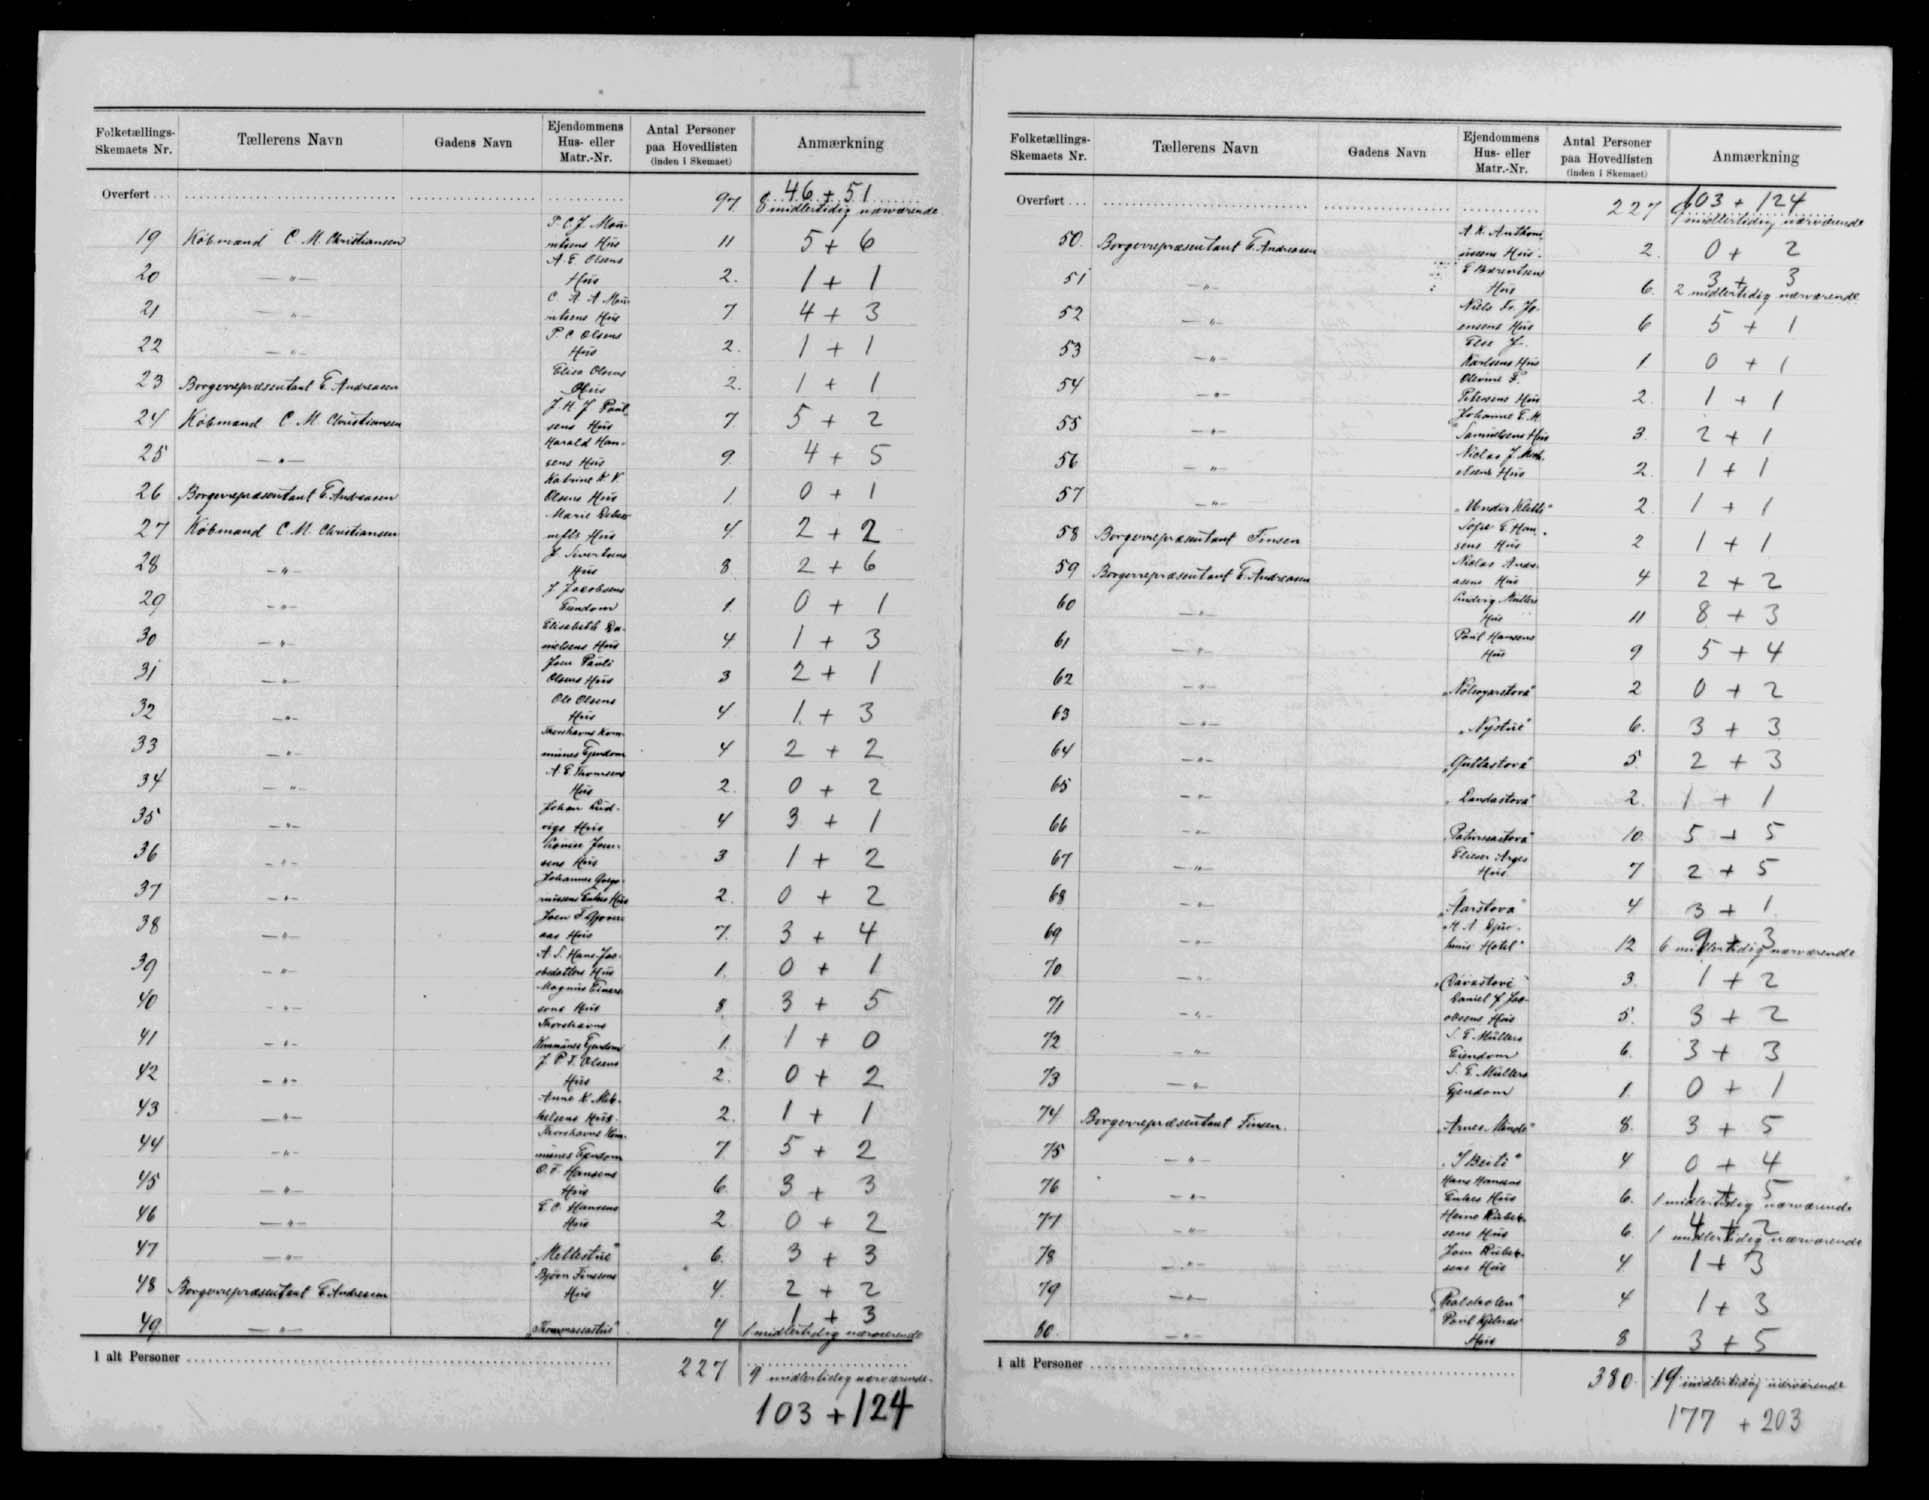 Folketællings-Skemaets Nr. Tællerens Navn Gadens Navn Ejendommens Hus- eller Matr.-Nr. Antal Personer paa Hovedlisten (inden i Skemaet) Anmærkning
Overført 97. 46 + 51 8 midlertidig nærværende
19 Købmand C. M. Christiansen Hus 11 5 + 6
20 —"— A. E. Olsens Hus 2. 1 + 1
21 —"— C. A. A. Hus 7 4 + 3
22 —"— P. C. Olsens Hus 2. 1 + 1
23 Borgerrepræsentant E. Andreasen Elisa Olsens Hus 2. 1 + 1
24 Købmand C. M. Christiansen J. H. J. Poulsens Hus 7. 5 + 2
25 —"— Harald Hansens Hus 9. 4 + 5
26 Borgerrepræsentant E. Andreasen Katrine K. K. Olsens Hus 1. 0 + 1
27 Købmand C. M. Christiansen Marie Hus 4. 2 + 2
28 —"— J. Sivertsens Hus 8 2 + 6
29 —"— J. Jacobsens Eiendom 1. 0 + 1
30 —"— Elisabeth Danielsens Hus 4. 1 + 3
31 —"— Joen Pauli Olsens Hus 3 2 + 1
32 —"— Ole Olsens Hus 4 1 + 3
33 —"— Thorshavns Kommunes Ejendom 4 2 + 2
34 —"— A. E. Thomsens Hus 2. 0 + 2
35 —"— Johan Ludvigs Hus 4 3 + 1
36 —"— Joensens Hus 3 1 + 2
37 —"— Johannes Enkes Hus 2. 0 + 2
38 —"— Joen F. Hus 7. 3 + 4
39 —"— A. S. Hans-Jacobsdatters Hus 1. 0 + 1
40 —"— Magnus Einarssons Hus 8. 3 + 5
41 —"— Thorshavns Kommunes Ejendom 1. 1 + 0
42 —"— J. P. F. Olsens Hus 2. 0 + 2
43 —"— Anne K. Mikkelsens Hus 2. 1 + 1
44 —"— Thorshavns Kommunes Ejendom 7 5 + 2
45 —"— O. F. Hansens Hus 6. 3 + 3
46 —"— E. O. Hansens Hus 2 0 + 2
47 —"— „Mellestue" 6. 3 + 3
48 Borgerrepræsentant E. Andreasen Bjørn Finsens Hus 4. 2 + 2
49 —"— 4 1 + 3 1 midlertidig nærværende
I alt Personer 227 9 midlertidig nærværende.
103 + 124
Folketællings-Skemaets Nr. Tællerens Navn Gadens Navn Ejendommens Hus- eller Matr.-Nr. Antal Personer paa Hovedlisten (inden i Skemaet) Anmærkning
Overført 227 103 + 124 9 midlertidig nærværende
50. Borgerrepræsentant E. Andreasen Hus. 2. 0 + 2
51 —"— E. Berentsens Hus 6. 3 + 3 2 midlertidig nærværende
52 —"— Niels Fr. Joensens Hus 6 5 + 1
53 —"— Else J. Karlsens Hus 1 0 + 1
54 —"— Petersens Hus 2. 1 + 1
55 —"— Johanne E. M. Samuelsens Hus 3. 2 + 1
56 —"— Hus 2. 1 + 1
57 —"— „Under Kletti" 2. 1 + 1
58 Borgerrepræsentant Finsen Sofie E. Hansens Hus 2 1 + 1
59 Borgerrepræsentant E. Andreasen Niclas Andreasens Hus 4 2 + 2
60 —"— Ludvig Müllers Hus 11 8 + 3
61 —"— Poul Hansens Hus 9 5 + 4
62 —"— 2 0 + 2
63 —"— „Nystue" 6. 3 + 3
64 —"— „Gullastova" 5. 2 + 3
65 —"— 2. 1 + 1
66 —"— 10. 5 + 5
67 —"— Elieser Arges Hus 7 2 + 5
68 —"— „Aarstova" 4 3 + 1
69 —"— Hotel" 12 9 + 3 6 midlertidig nærværende
70 —"— 3. 1 + 2
71 —"— Daniel J. Jacobsens Hus 5. 3 + 2
72 —"— S. E. Müllers Eiendom 6. 3 + 3
73 —"— S. E. Müllers Ejendom 1. 0 + 1
74 Borgerrepræsentant Finsen. „Arnes Minde" 8. 3 + 5
75 —"— „I Beiti" 4 0 + 4
76 —"— Hans Hansens Enkes Hus 6. 1 + 5 1 midlertidig nærværende
77 —"— Heine Rubeksens Hus 6. 4 + 2 1 midlertidig nærværende
78 —"— Joen Rubeksens Hus 4. 1 + 3
79 —"— 4 1 + 3
80. —"— Poul Hus 8 3 + 5
I alt Personer 380. 19 midlertidig nærværende
177 + 203